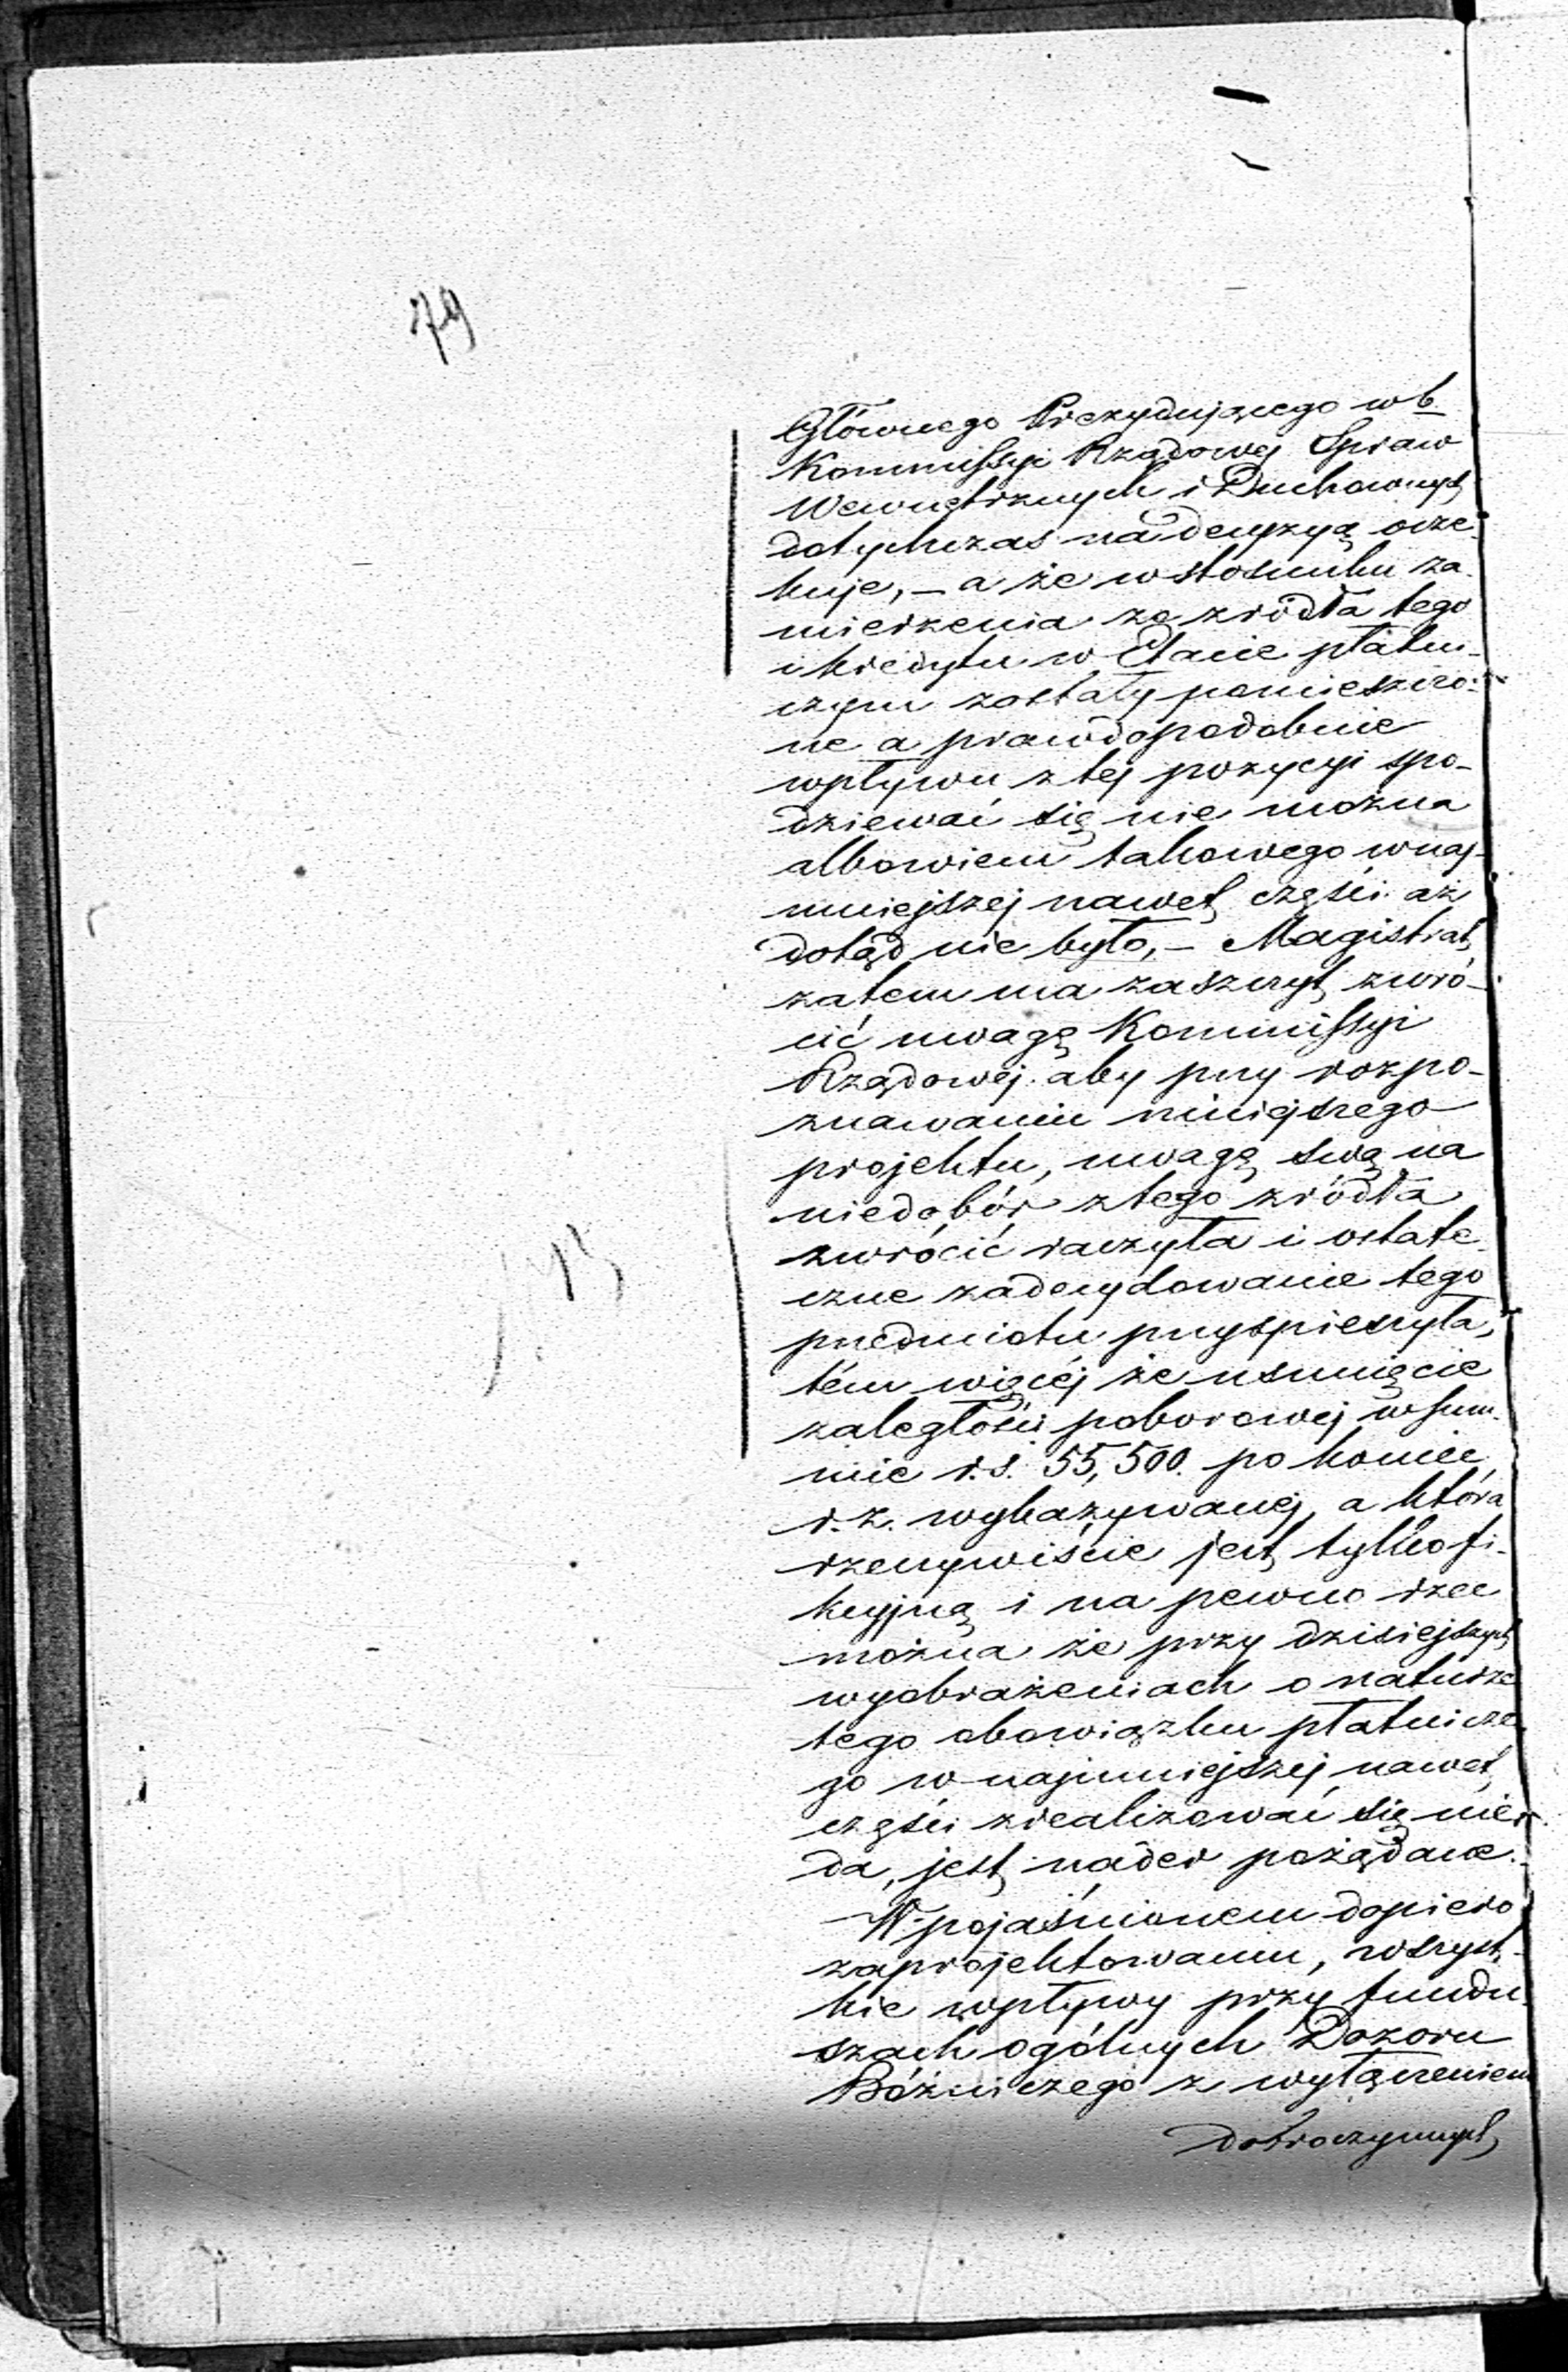 79
Głównego Prezydującego w b.
Kommissyi Rządowej Spraw
Wewnętrznych i Duchownych
dotychczas na decyzyą ocze-
kuje, – a że w stosunku za-
mierzenia ze zródła tego
i kredytu w Etacie płatni-
czym zostały pomieszczo-
ne a prawdopodobnie
wpływu z tej pozycyi spo-
dziewać się nie można
albowiem takowego w naj-
mniejszej nawet części aż
dotąd nie było, – Magistrat
zatem ma zaszczyt zwró-
cić uwagę Kommissyi
Rządowej aby przy rozpo-
znawaniu niniejszego
projektu, uwagę swą na
niedobór z tego zródła
zwrócić raczyła i ostate-
czne zadecydowanie tego
przedmiotu przyspieszyła,
tém więcéj że usunięcie
zaległości poborowej w sum-
mie r.s. 55,500. po koniec
r. z. wykazywanej, a która
rzeczywiście jest tylko fi-
kcyjną i na pewno rzec
można że przy dzisiejszych
wyobrażeniach o naturze
tego obowiązku płatnicze-
go w najmniejszej nawet
części zrealizować się nie
da, jest nader pożądane.
W pojaśnionem dopiero
zaprojektowaniu, wszyst-
kie wpływy przy fundu-
szach ogólnych Dozoru
Bóżniczego z wyłączeniem
dobroczynnych